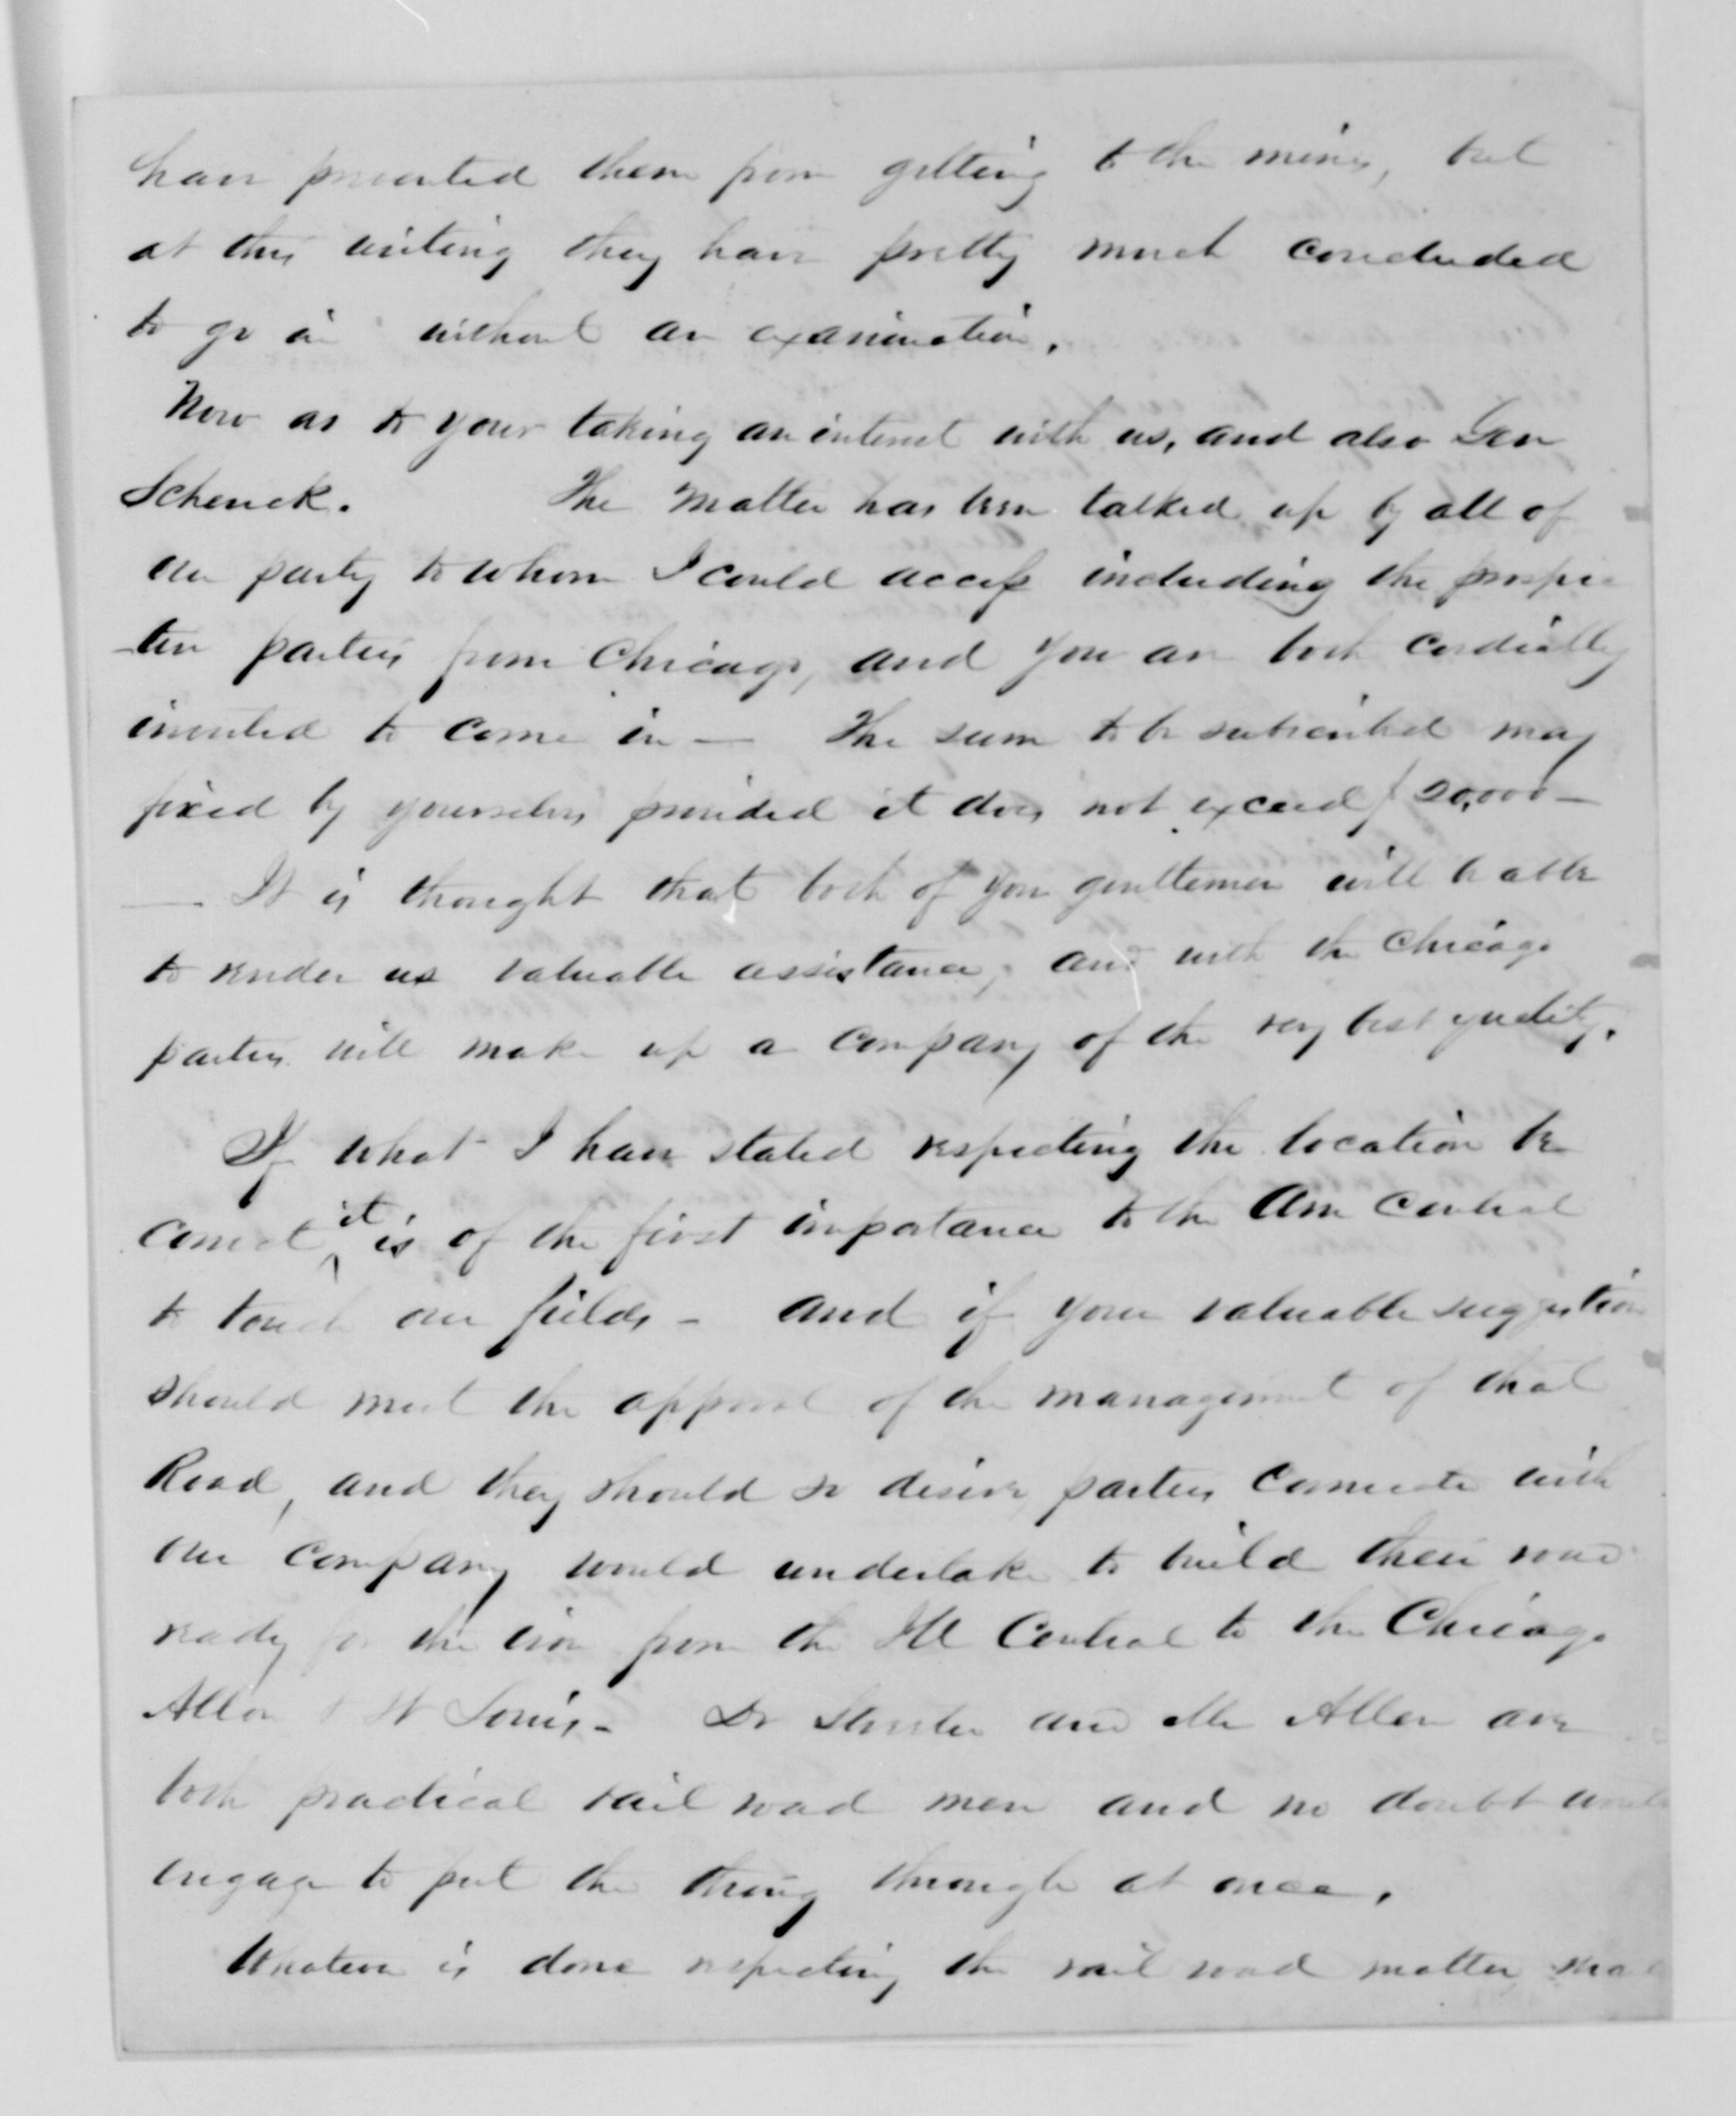 have prevented them from getting to the mines, but
at this writing they have pretty much concluded
to go in without an examination.
Now as to your taking an interest with us, and also Gen
Schenck. The matter has been talked up by all of
our party to whom I could access including the prospec
-tive parties from Chicago, and you are both cordially
invited to come in — The sum to be subscribed may
fixed by yourselves provided it does not exceed $20,000 —
— It is thought that both of you gentlemen will be able
to render us valuable assistance, and with the Chicago
parties will make up a company of the very best quality.
If what I have stated respecting the location be
correct, it is of the first importance to the Am Central
to touch our fields - and if your valuable suggestion
should meet the approval of the management of that
Road, and they should so desire parties connected with
our company would undertake to build their road
ready for the iron from the Ill Central to the Chicago
Alton & St Louis - Dr and Mr Allen are
both practical rail road men and no doubt would
engage to put the thing through at once.
Whatever is done respecting the rail road matter